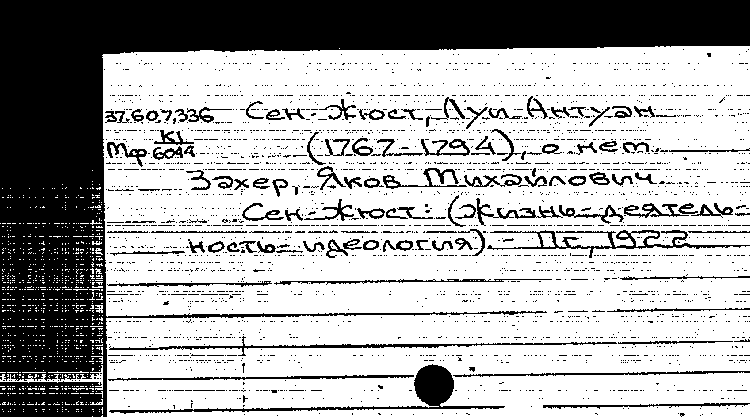 37.60.7.336 Сен-Жюст, Луи Антуан
Мф К1/6044 (1767-1794), о нем.
Захер, Яков Михайлович.
Сен-Жюст: (Жизнь-деятель-
ность-идеология). - Пг., 1922